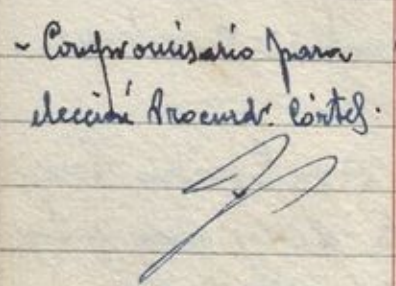 - Compromisario para
elección Procurdr. Cortes.